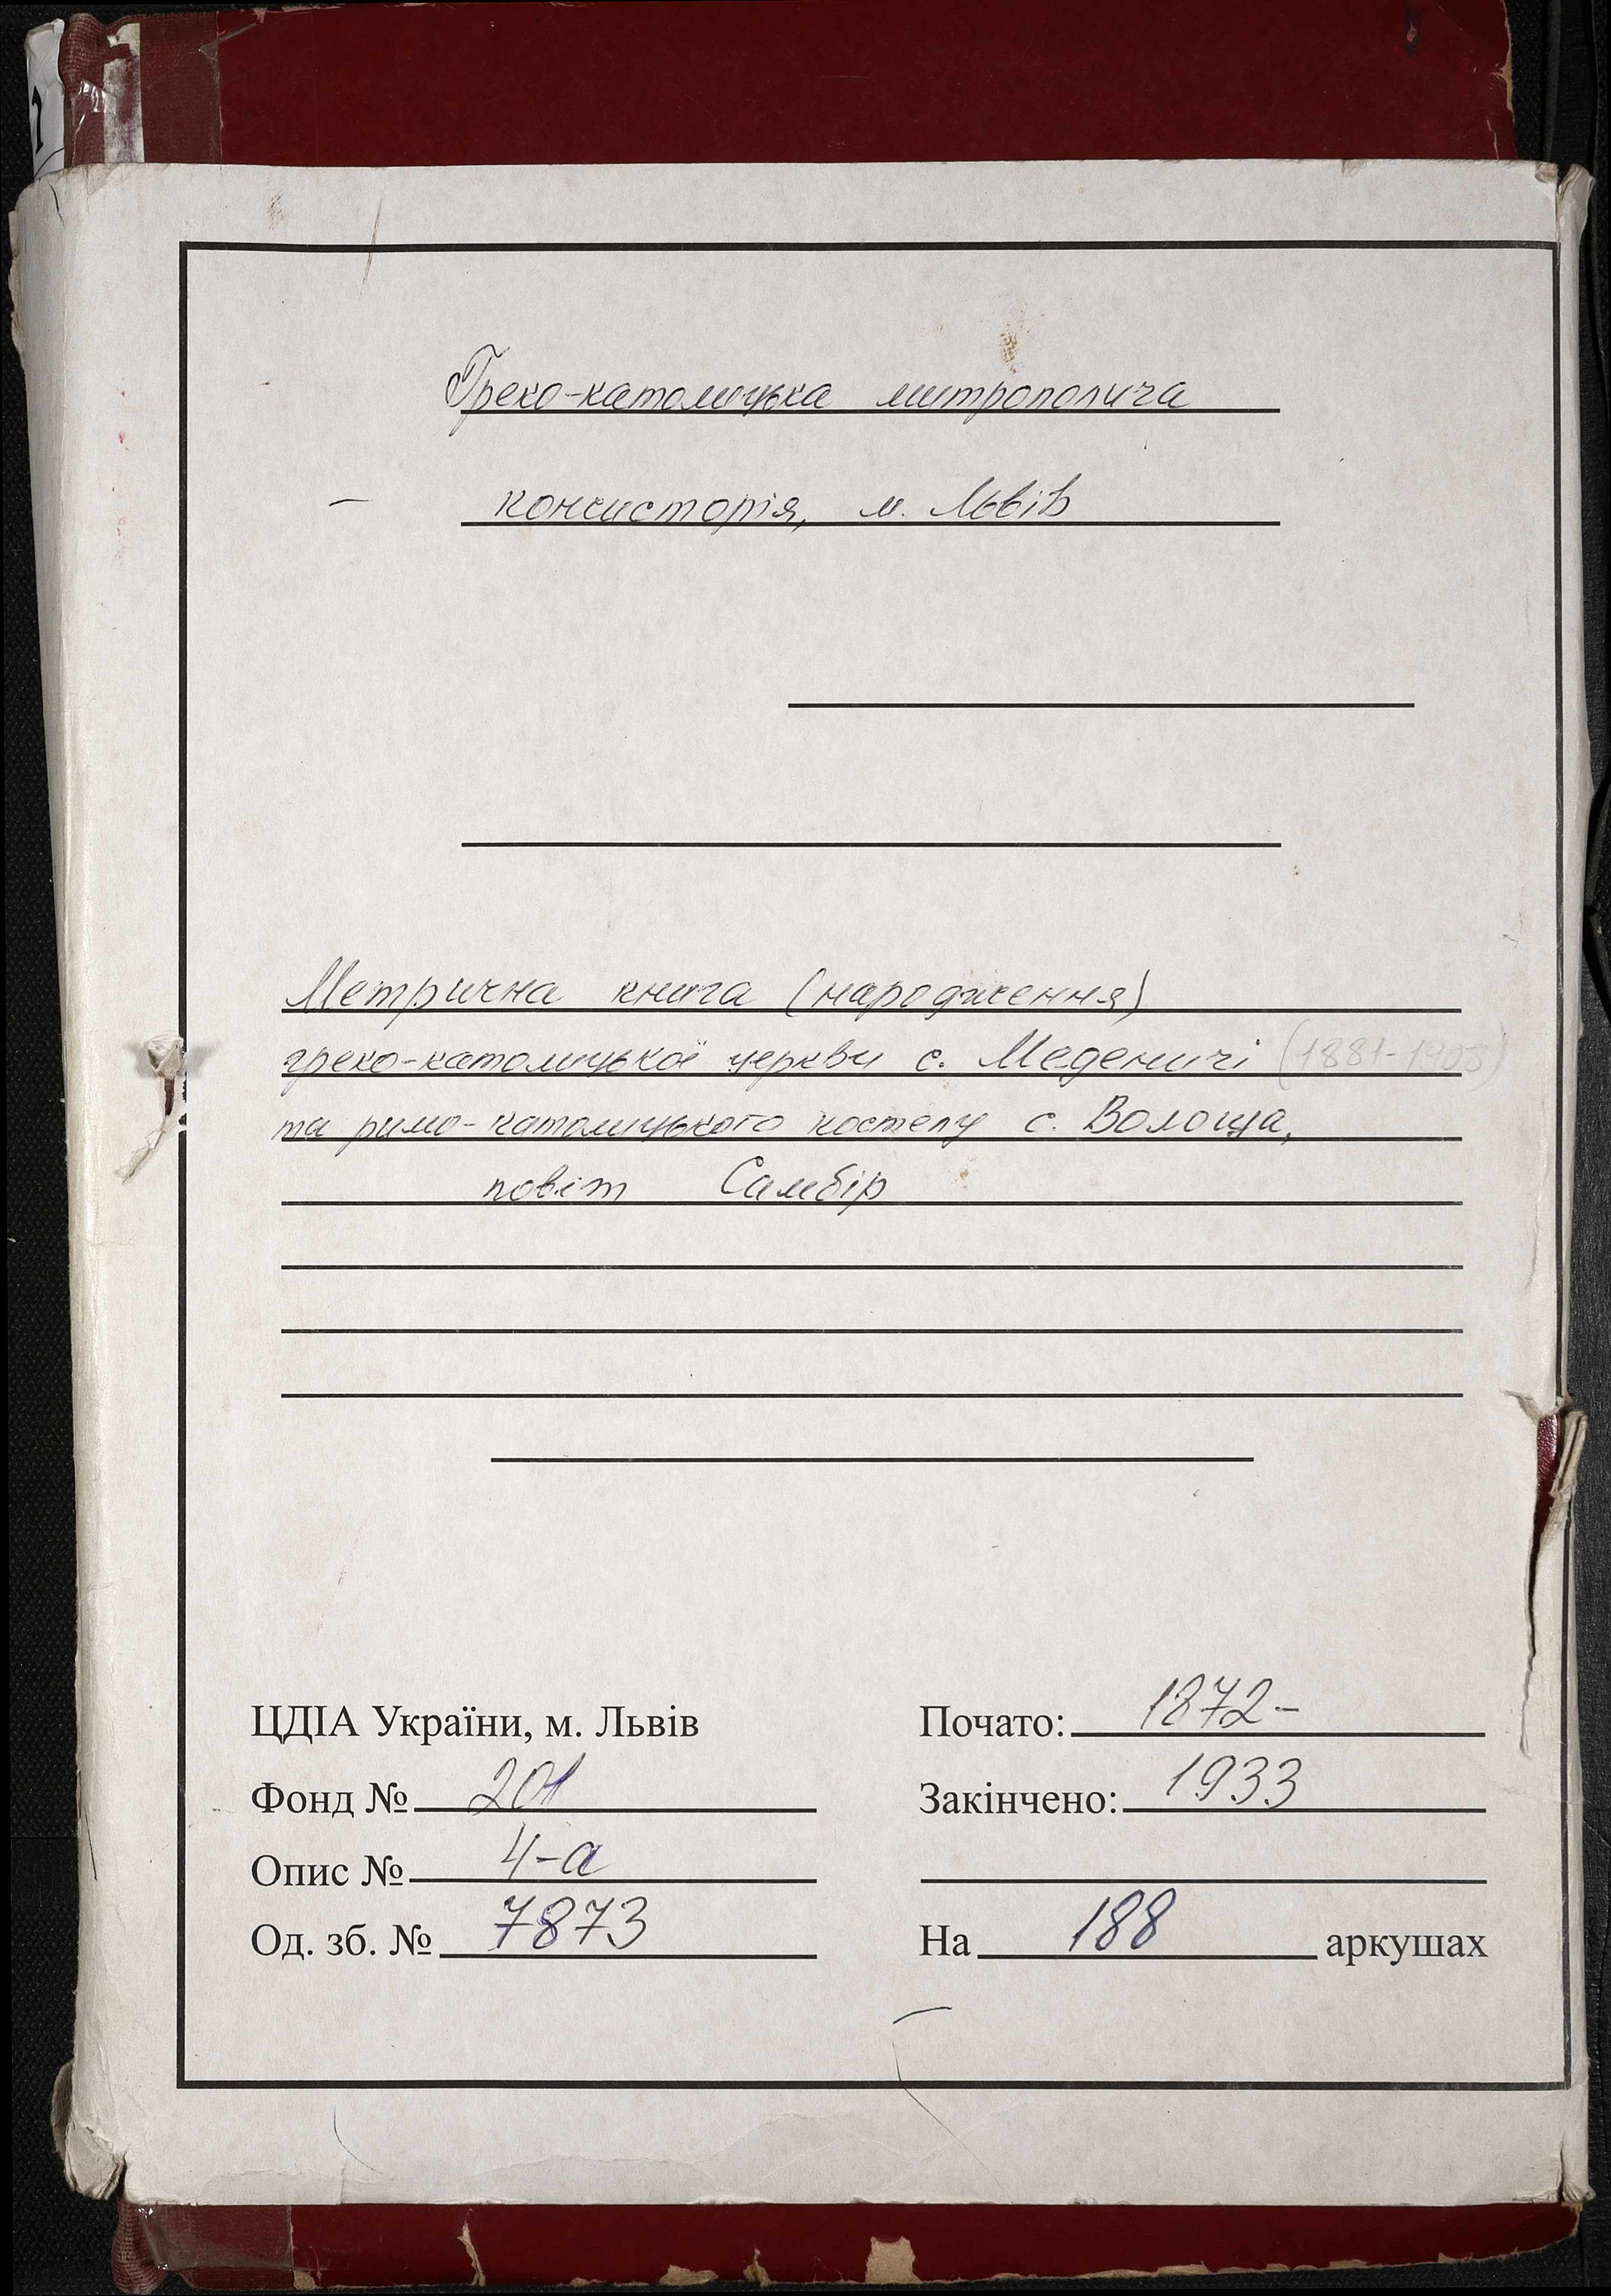 Греко-католицька митрополича
консисторія, м. Львів
Метрична книга (народження)
греко-католицької церкви с. Меденичі (1881-1908)
та римо-католицького костелу с. Волоща,
повіт Самбір
ЦДІА України, м. Львів
Фонд № 201
Опис № 4-а
Од. зб. № 7873
Почато: 1872-
Закінчено: 1933
На 188 аркушах